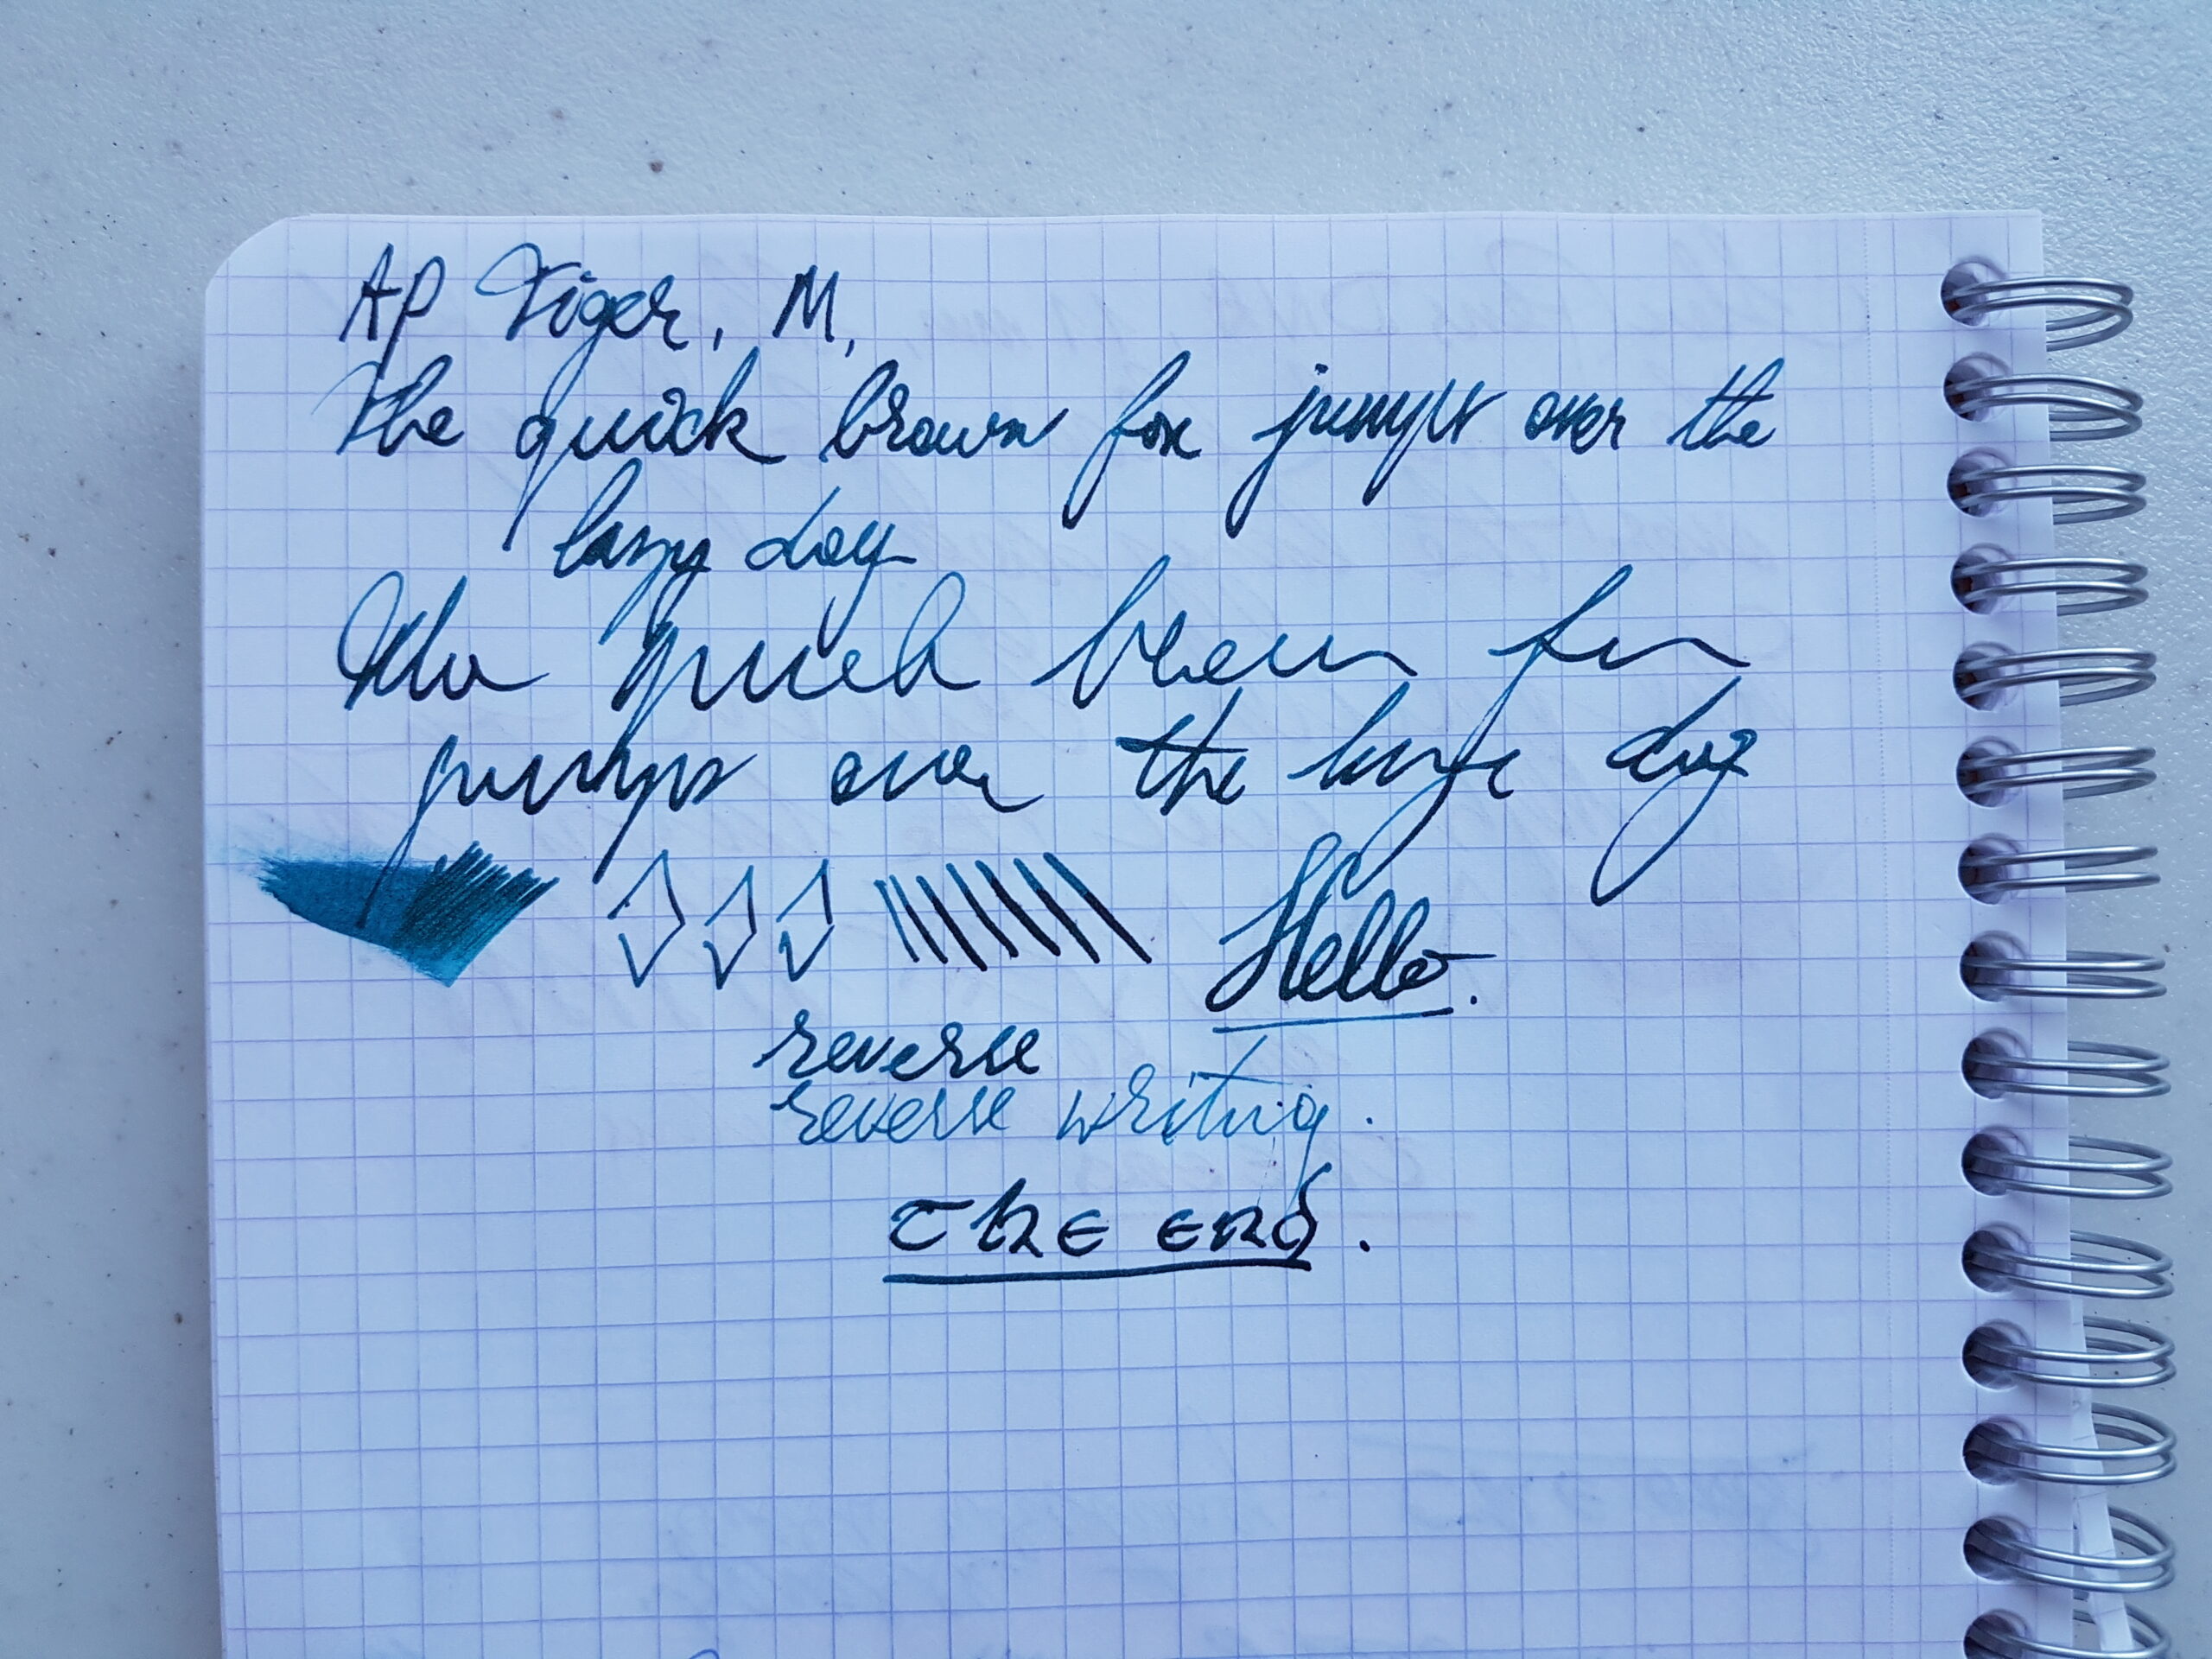 AP Tiger, M,
The quick brown fox jumps over the
lazy dog
The quick brown fox
jumps over the lazy dog
Hello.
reverse
reverse writing.
The end.